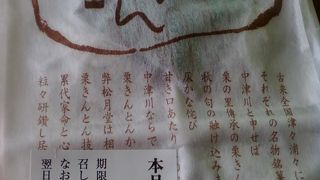 ん
古来全国津々浦々に
それぞれの名物銘菓
中津川と申せば
栗の里傳承の栗きん
秋の匂の融け込み
仄かな侘び
甘き口あたり
中津川ならで
栗きんとんか
弊松月堂は相
栗きんとん技
累代家命と心
粒々研鑚し居
本品
期限
召し
なお
翌日